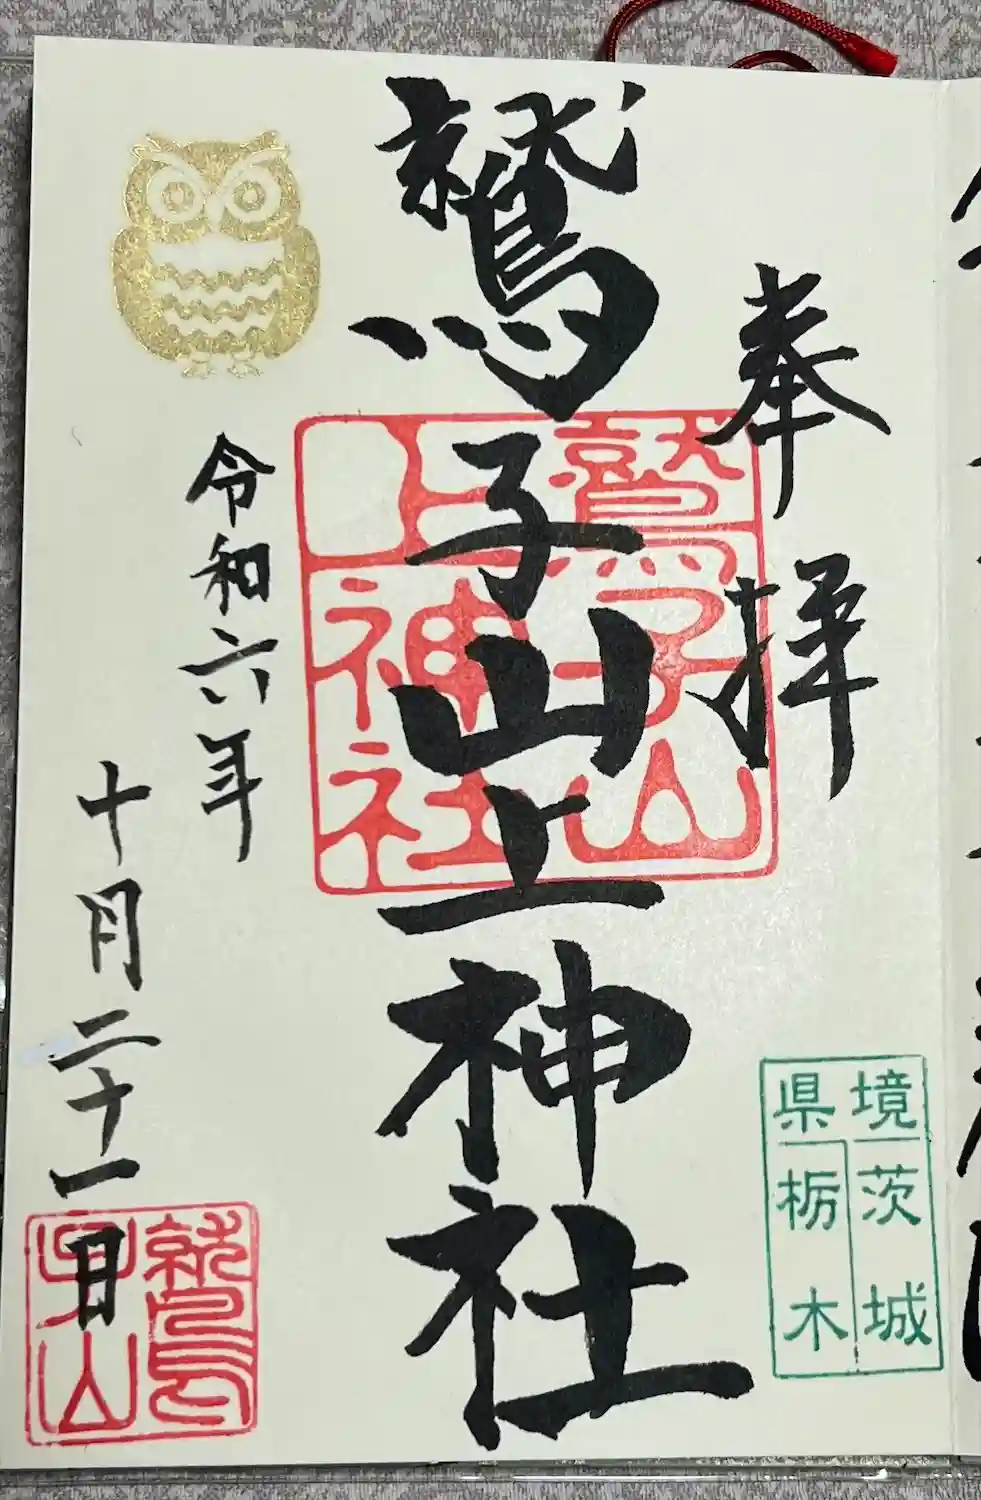 奉拝
鷲子山上神社
鷲子山
上神社
令和六年
十月二十一日
鷲子山
県境
茨城
栃木